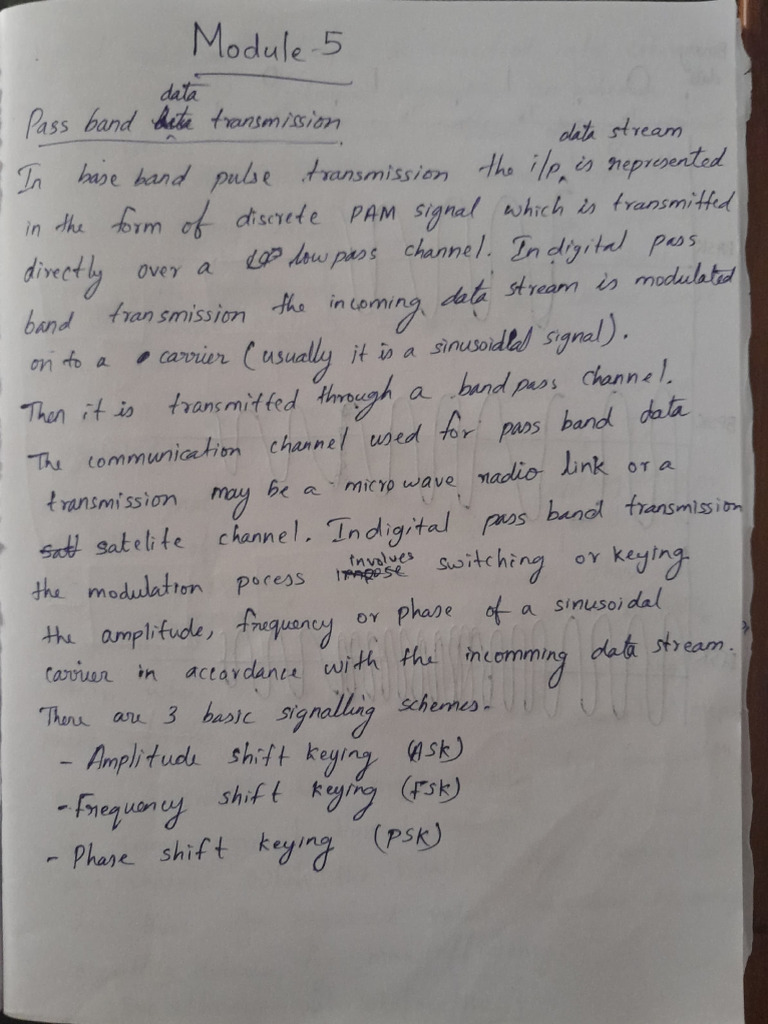 Module-5
Pass band data transmission
In base band pulse transmission the i/p data stream is represented
in the form of discrete PAM signal which is transmitted
directly over a low pass channel. In digital pass
band transmission the incoming data stream is modulated
on to a carrier (usually it is a sinusoidal signal).
Then it is transmitted through a band pass channel.
The communication channel used for pass band data
transmission may be a microwave radio link or a
satelite channel. In digital pass band transmission
the modulation pocess involves switching or keying
the amplitude, frequency or phase of a sinusoidal
carrier in accordance with the incomming data stream.
There are 3 basic signalling schemes-
- Amplitude shift keying (ASK)
- Frequency shift keying (FSK)
- Phase shift keying (PSK)